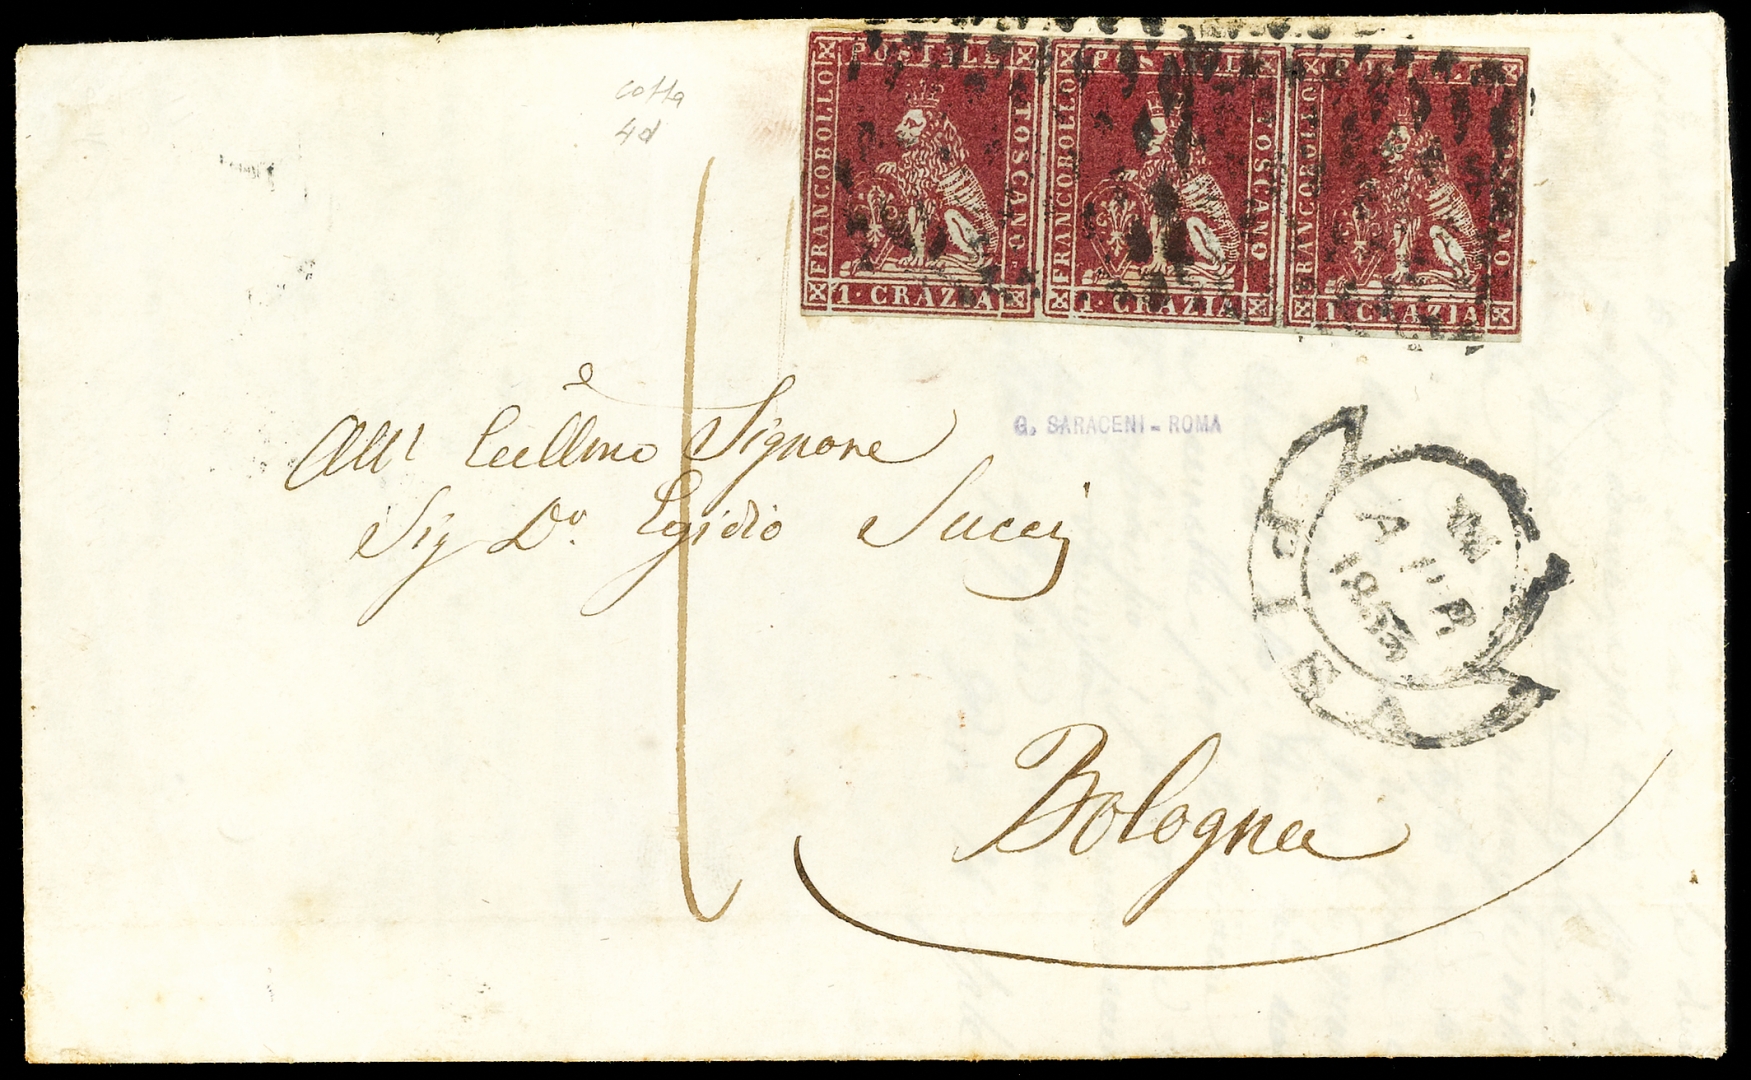 cotta
4d
FRANCOBOLLO POSTALE TOSCANO
1·CRAZIA
FRANCOBOLLO POSTALE TOSCANO
1·CRAZIA
FRANCOBOLLO POSTALE TOSCANO
1·CRAZIA
G. SARACENI - ROMA
All' Eccllmo Signore
Sig Dr. Egidio Succi
PISA
APR
1853
Bologna